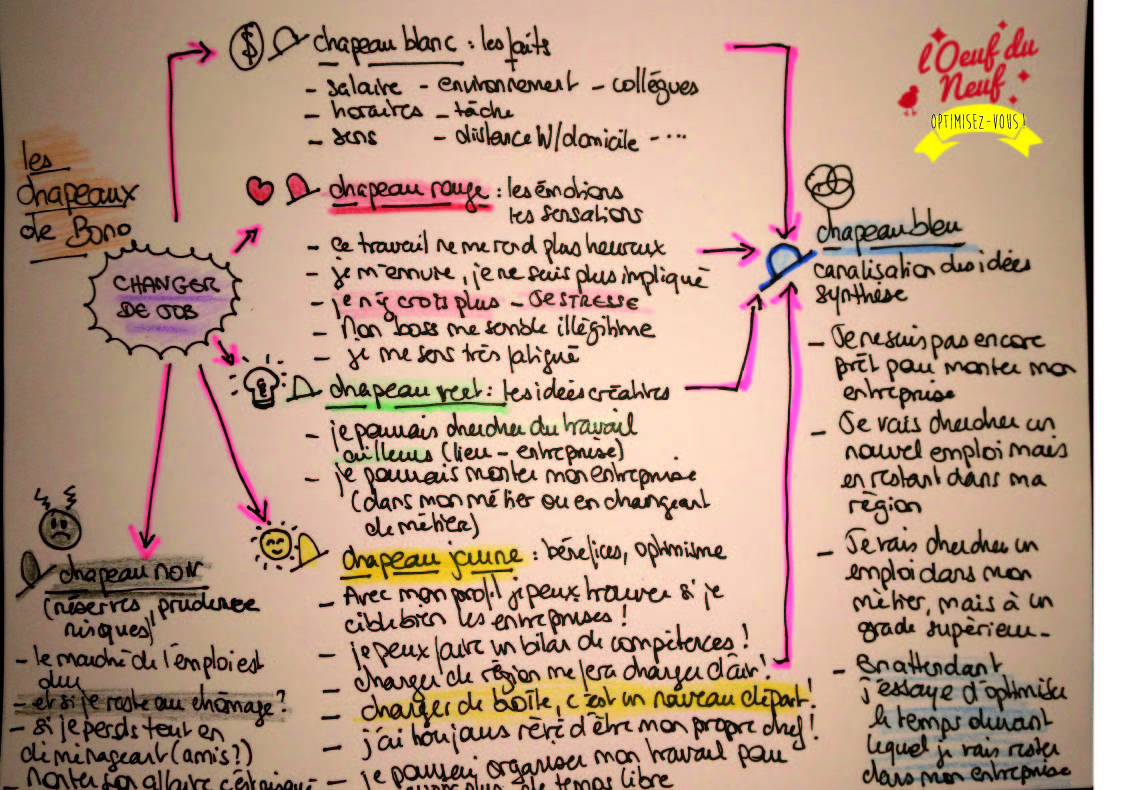 les
chapeaux
de Bono
CHANGER
DE JOB
$
chapeau blanc : les faits
- salaire - environnement - collègues
- horaires - tâche
- sens - distance W/domicile - ...
chapeau rouge : les émotions
les sensations
- ce travail ne me rend plus heureux
- je m'ennuie, je ne suis plus impliqué
- je n'y crois plus - JE STRESSE
- Mon boss me semble illégitime
- je me sens très fatigué
chapeau vert : les idées créatives
- je pourrais chercher du travail
ailleurs (lieu - entreprise)
- je pourrais monter mon entreprise
(dans mon métier ou en changeant
de métier)
chapeau jaune : bénéfices, optimisme
- Avec mon profil je peux trouver si je
cible bien les entreprises !
- je peux faire un bilan de compétences !
- changer de région me fera changer d'air !
- changer de boîte, c'est un nouveau départ !
- j'ai toujours rêvé d'être mon propre chef !
- je pourrai organiser mon travail pour
plus de temps libre
chapeau noir
(réserves, prudence
risques)
- le marché de l'emploi est
dur
- et si je reste au chômage ?
- si je perds tout en
déménageant (amis ?)
- monter son affaire c'est risqué
l'Oeuf du
Neuf
OPTIMISEZ-VOUS !
chapeau bleu
canalisation des idées
synthèse
- Je ne suis pas encore
prêt pour monter mon
entreprise
- Je vais chercher un
nouvel emploi mais
en restant dans ma
région
- Je vais chercher un
emploi dans mon
métier, mais à un
grade supérieur.
- En attendant
j'essaye d'optimiser
le temps durant
lequel je vais rester
dans mon entreprise